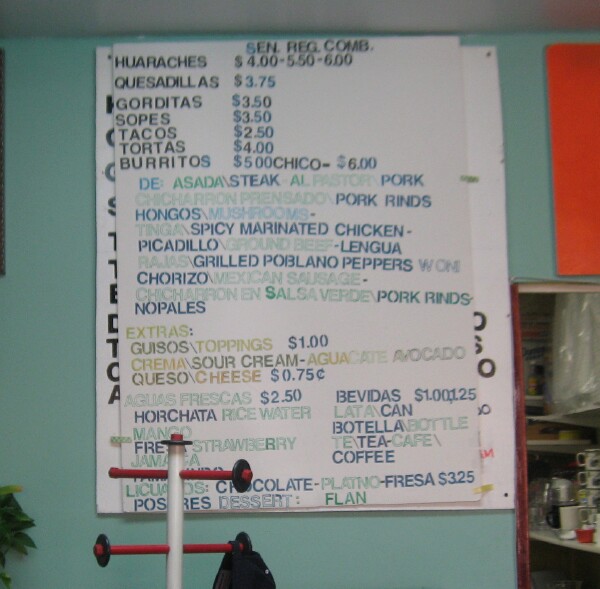 SEN. REG. COMB.
HUARACHES $4.00-5.50-6.00
QUESADILLAS $3.75
GORDITAS $3.50
SOPES $3.50
TACOS $2.50
TORTAS $4.00
BURRITOS $5 00 CHICO- $6.00
DE: ASADA\STEAK-AL PASTOR\PORK
CHICHARRON PRENSADO\PORK RINDS
HONGOS\MUSHROOMS-
TINGA\SPICY MARINATED CHICKEN-
PICADILLO\GROUND BEEF-LENGUA
RAJAS\GRILLED POBLANO PEPPERS W ONI
CHORIZO\MEXICAN SAUSAGE-
CHICHARRON EN SALSA VERDE\PORK RINDS-
NOPALES
EXTRAS:
GUISOS\TOPPINGS $1.00
CREMA\SOUR CREAM-AGUACATE AVOCADO
QUESO\CHEESE $0.75¢
AGUAS FRESCAS $2.50
HORCHATA RICE WATER
MANGO
FRESA STRAWBERRY
JAMAICA
BEVIDAS $1.00\1.25
LATA\CAN
BOTELLA\BOTTLE
TE\TEA-CAFE\
COFFEE
LICUADOS: CHOCOLATE-PLATNO-FRESA $3.25
POSTRES DESSERT: FLAN